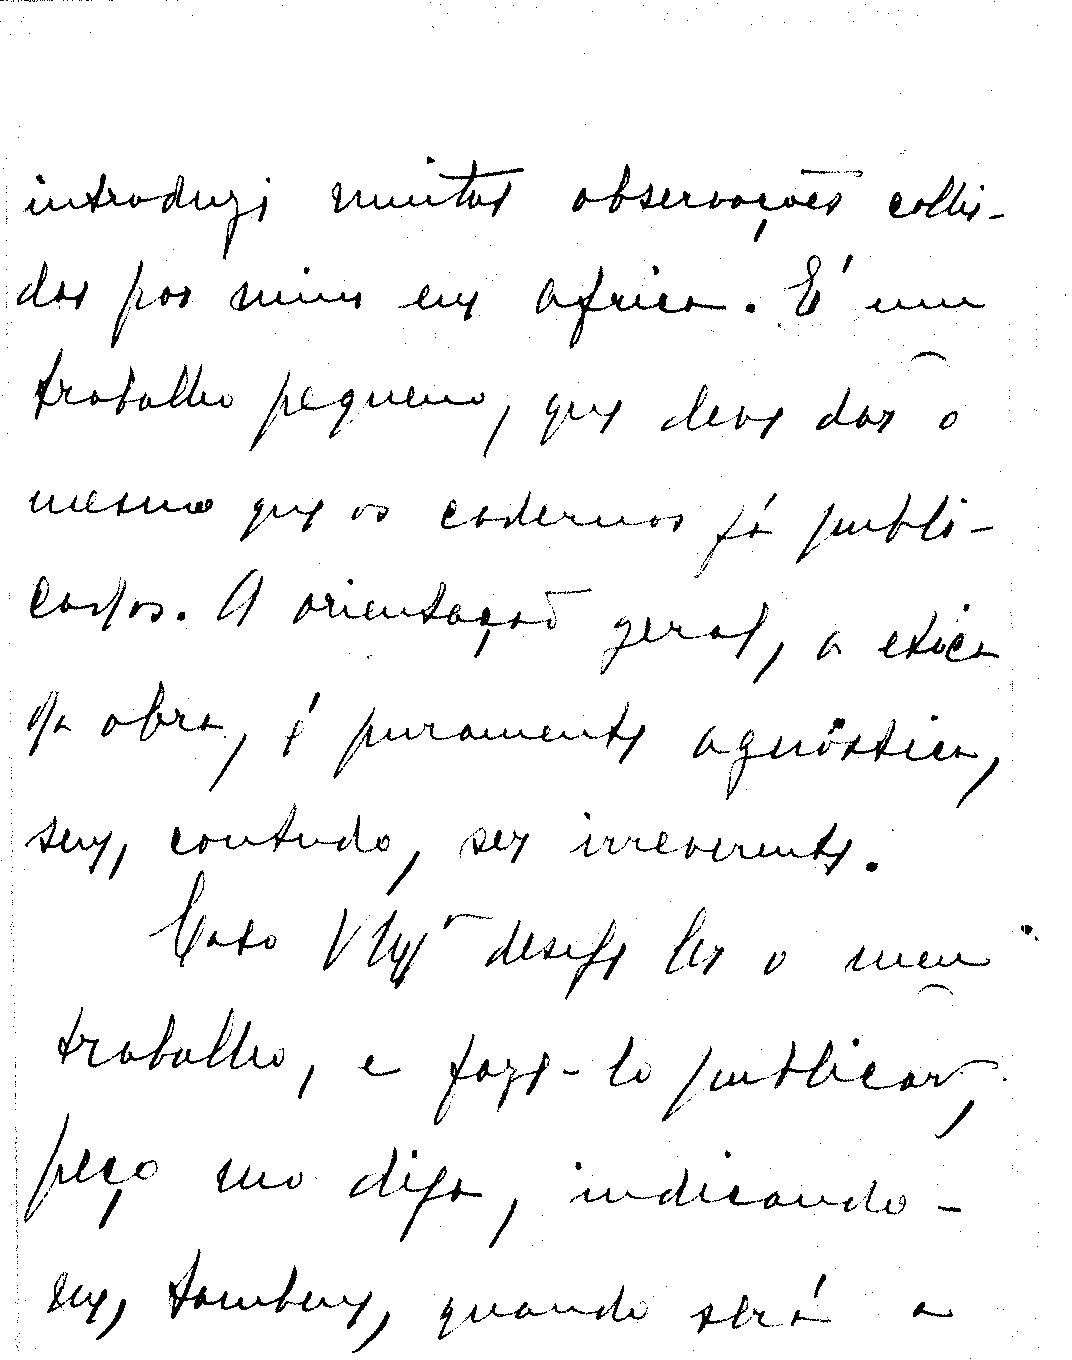 introduzi muitas observações colhi-
das por mim em Africa. É um
trabalho pequeno, que deve dar o
mesmo que os cadernos já publi-
cados. A orientação geral, a etica
da obra, é puramente agnóstica,
sem, contudo, ser irreverente.
Caso V Exª deseje ler o meu
trabalho, e faze-lo publicar,
peço mo diga, indicando-
me, tambem, quando será a